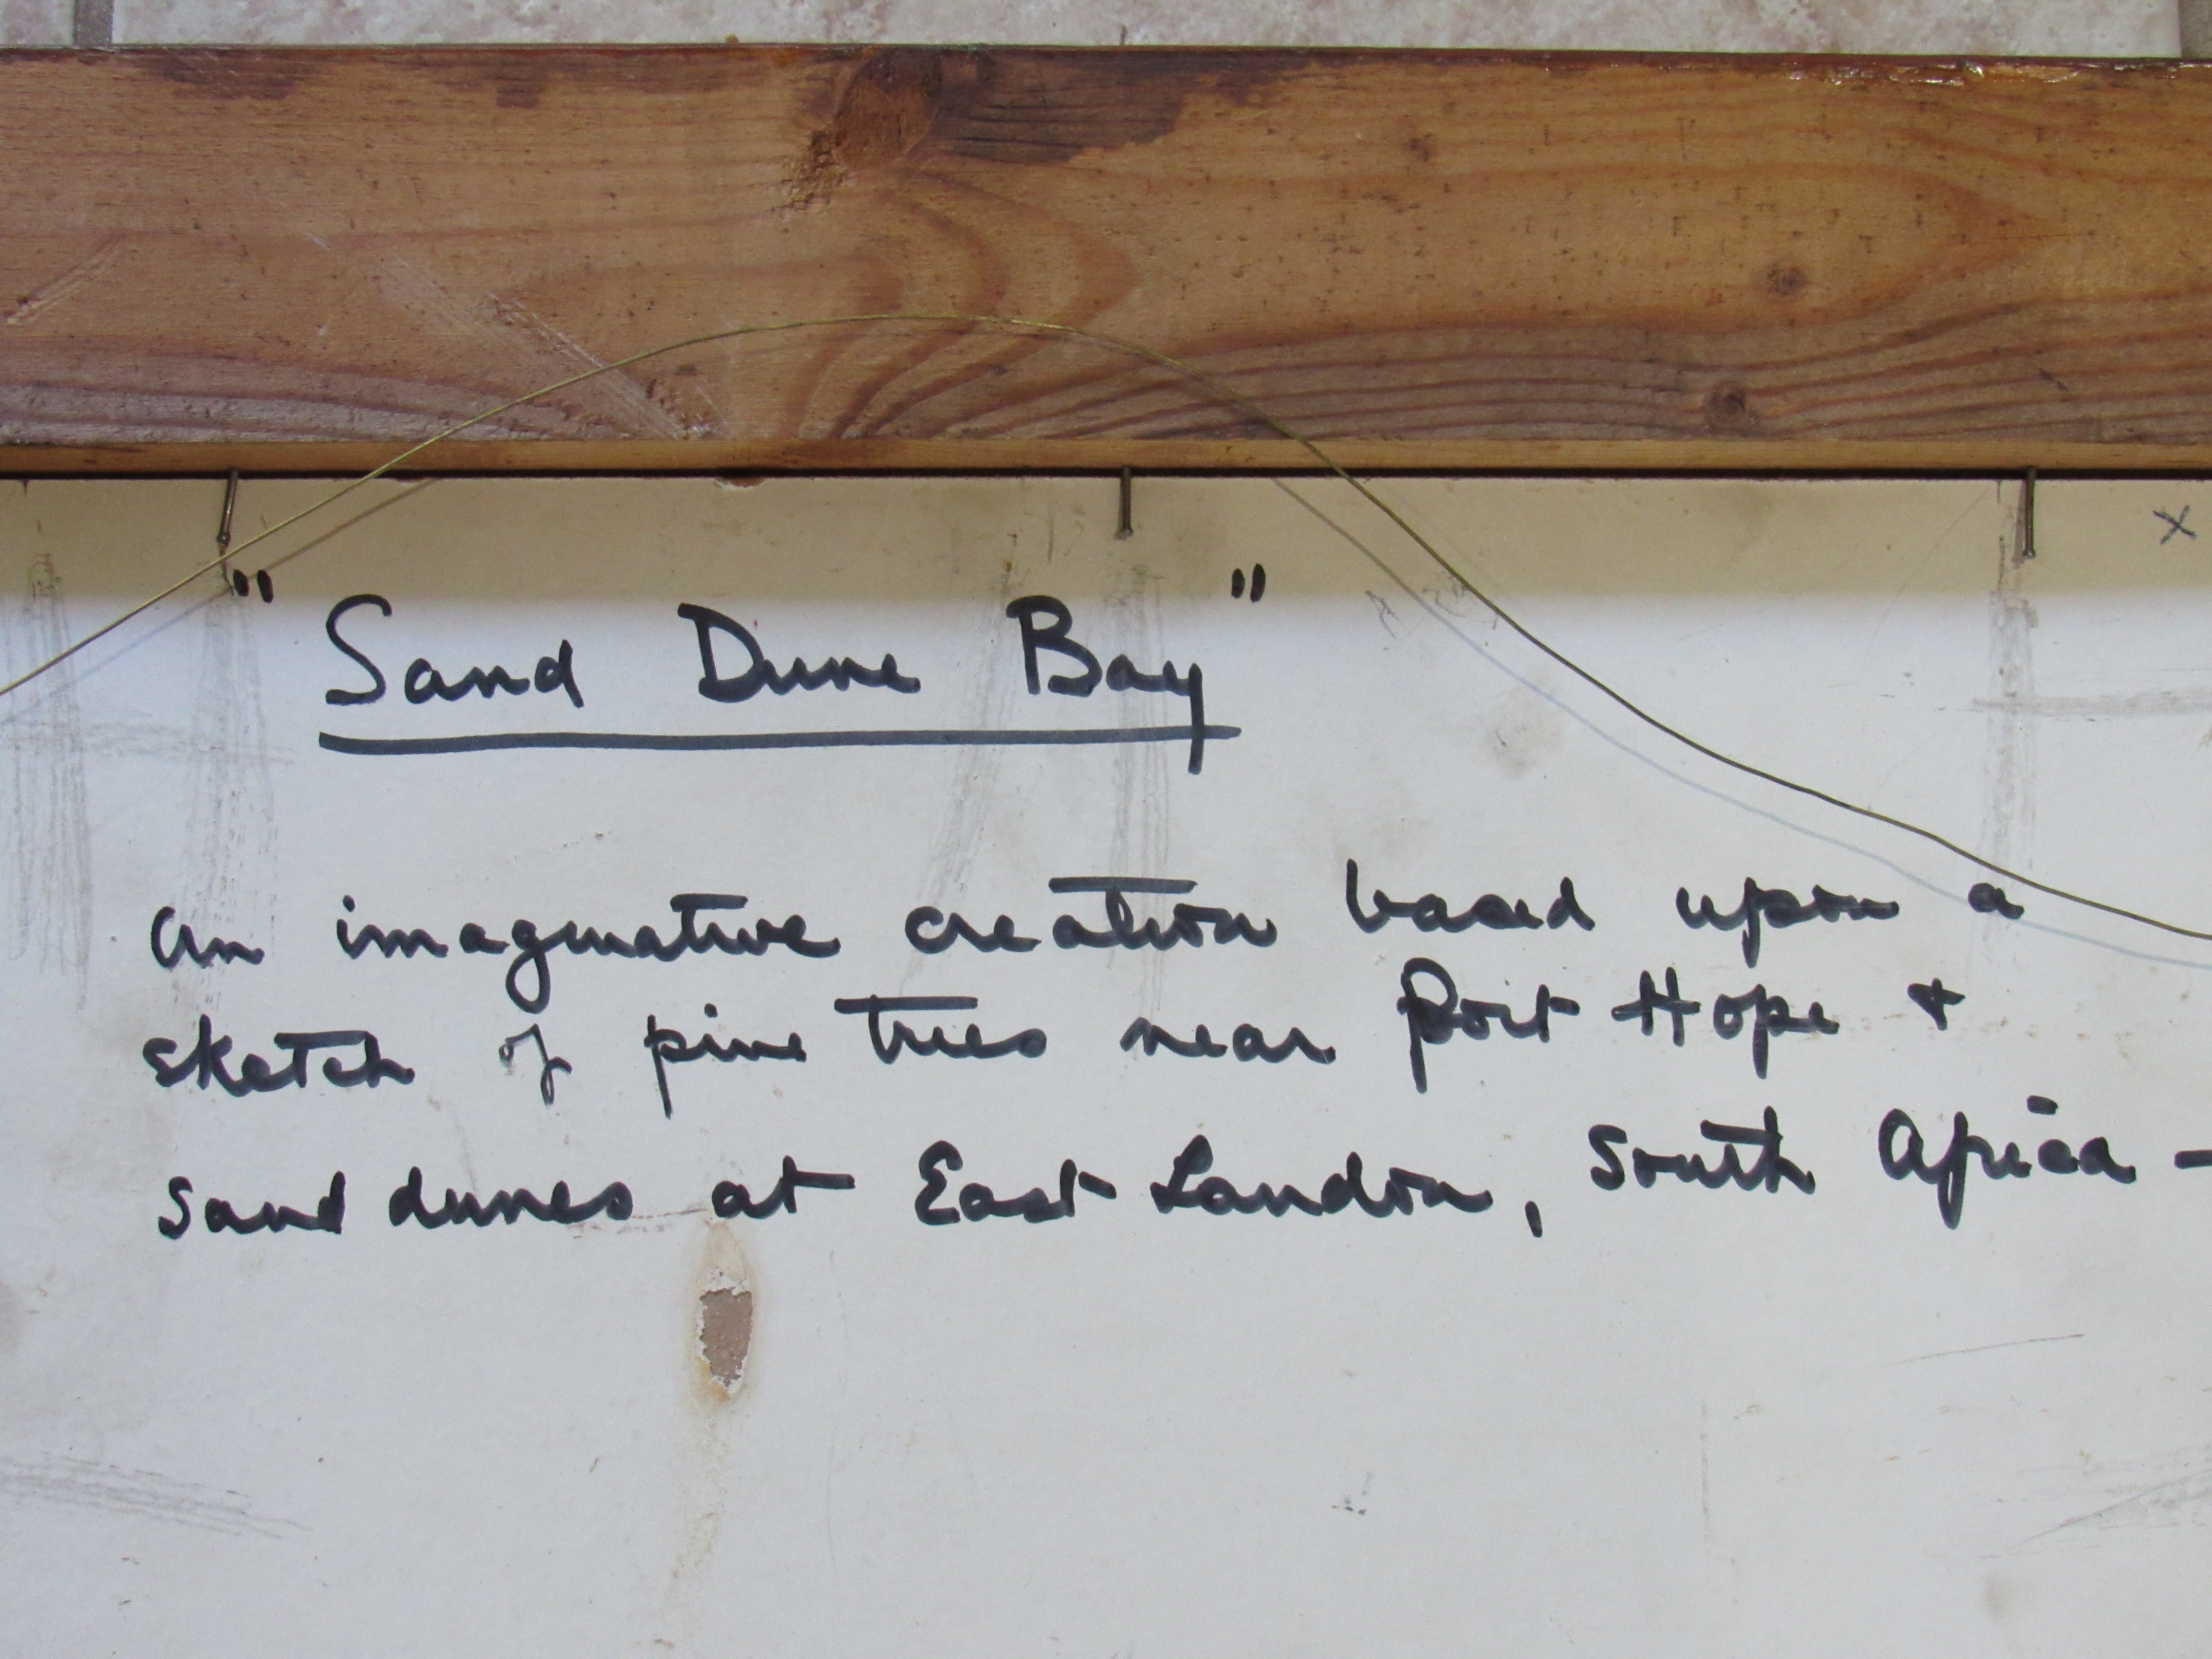 "Sand Dune Bay"
An imaginative creation based upon a
sketch of pine trees near Port Hope &
sand dunes at East London, South Africa -
x